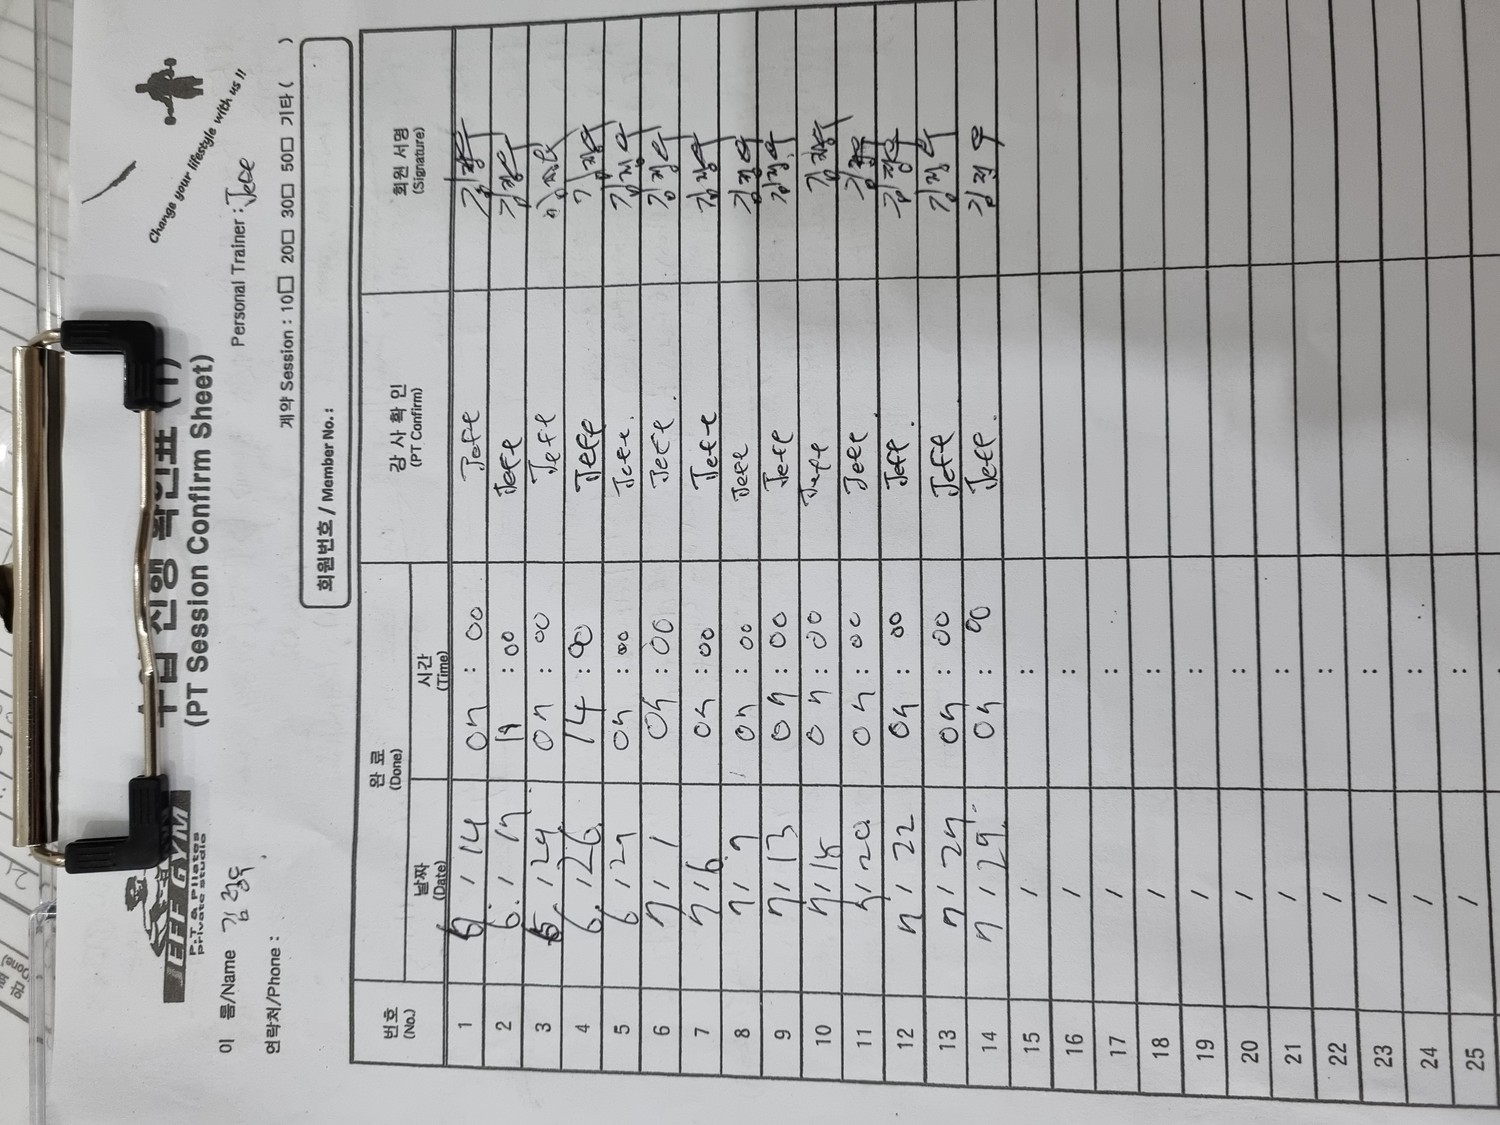 EFE GYM
P.T & Pilates
private studio
수업 진행 확인표 (1)
(PT Session Confirm Sheet)
Change your lifestyle with us !!
이 름/Name 김정우
Personal Trainer : Jeff
연락처/Phone :
계약 Session : 10□ 20□ 30□ 50□ 기타 ( )
회원번호 / Member No. :
번호 (No.) 완 료 (Done) 강 사 확 인 (PT Confirm) 회원 서명 (Signature)
날짜 (Date) 시간 (Time)
1 6 / 14 07 : 00 Jeff 김정우
2 6 / 17 19 : 00 Jeff 김정우
3 6 / 24 07 : 00 Jeff 김정우
4 6 / 26 14 : 00 Jeff 김정우
5 6 / 29 07 : 00 Jeff 김정우
6 7 / 1 07 : 00 Jeff 김정우
7 7 / 6 07 : 00 Jeff 김정우
8 7 / 7 07 : 00 Jeff 김정우
9 7 / 13 07 : 00 Jeff 김정우
10 7 / 18 07 : 00 Jeff 김정우
11 7 / 20 07 : 00 Jeff 김정우
12 7 / 22 07 : 00 Jeff 김정우
13 7 / 27 07 : 00 Jeff 김정우
14 7 / 29 07 : 00 Jeff 김정우
15 / :
16 / :
17 / :
18 / :
19 / :
20 / :
21 / :
22 / :
23 / :
24 / :
25 / :